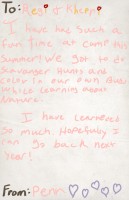 To: Regi & Khepri
I have had such a
fun time at camp this
Summer! We got to do
Scavenger Hunts and
color in our own
while learning about
nature.
I have learned
so much. Hopefully I
can go back next
year!
From: Penn